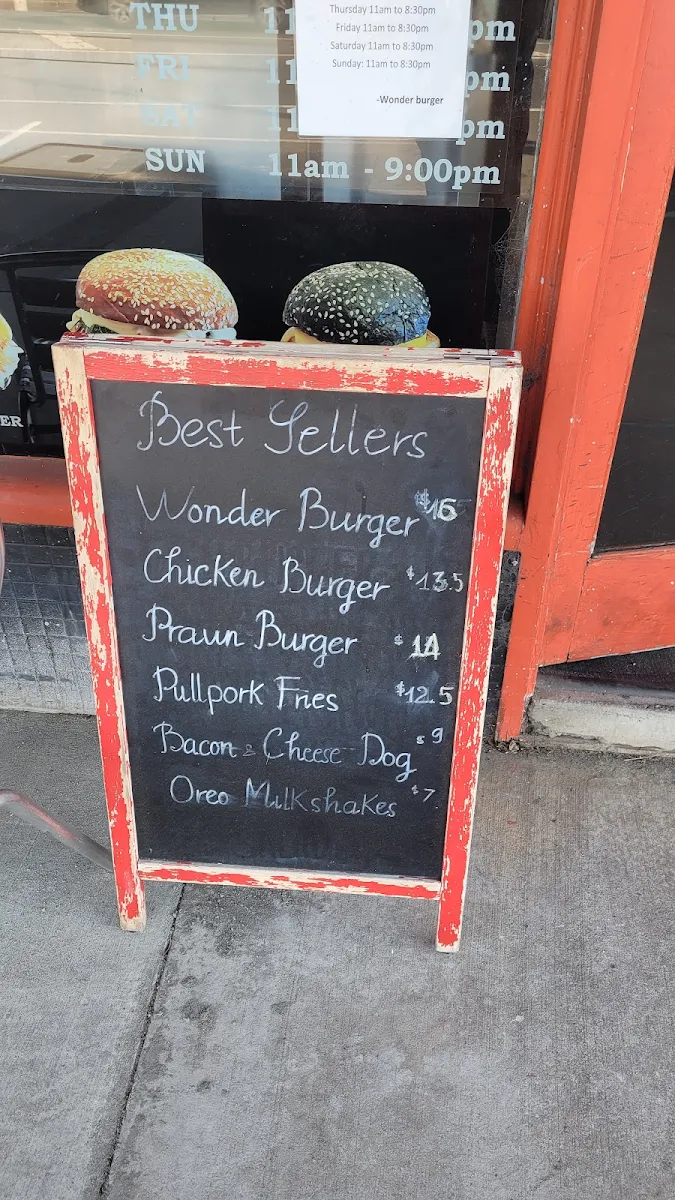 THU 11 pm
FRI 11 pm
SAT 11 pm
SUN 11am - 9:00pm
Thursday 11am to 8:30pm
Friday 11am to 8:30pm
Saturday 11am to 8:30pm
Sunday: 11am to 8:30pm
-Wonder burger
ER
Best Sellers
Wonder Burger $16
Chicken Burger $13.5
Praun Burger $14
Pullpork Fries $12.5
Bacon & Cheese Dog $9
Oreo Milkshakes $7